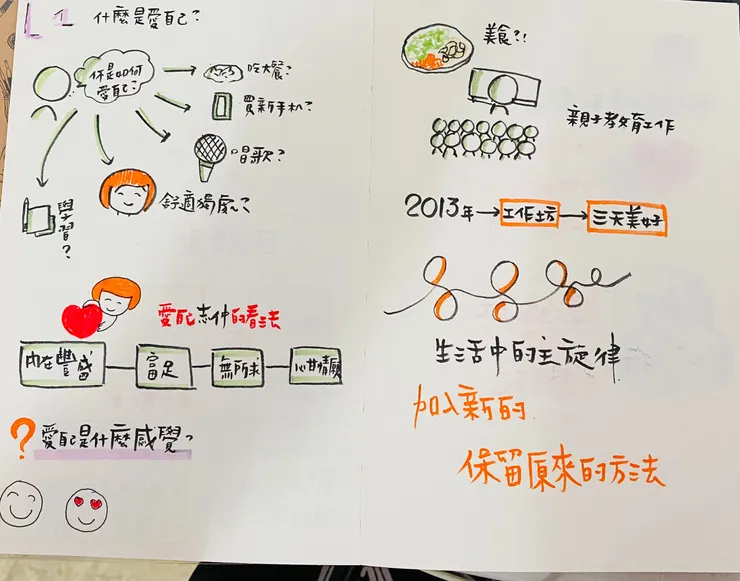 L1 什麼是愛自己?
你是如何
愛自己?
吃大餐?
買新手机?
唱歌?
舒適獨處?
學習?
愛自己志仲的看法
內在豐盛
富足
無所求
心甘情願
?愛自己是什麼感覺?
美食?!
親子教育工作
2013年→工作坊→三天美好
生活中的主旋律
加入新的
保留原來的方法